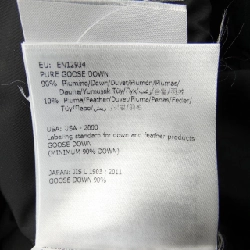 EU: EN12934
PURE GOOSE DOWN
90% Piumino/Down/Duvet/Plumón/Plumas/
Daune/Yumuşak Tüy/
10% Piuma/Feather/Duvet/Pluma/Penas/Feder/
Tüy/Перо/
USA: USA - 2000
Labeling standard for down and feather products
GOOSE DOWN
(MINIMUM 90% DOWN)
JAPAN: JIS L 1903 : 2011
GOOSE DOWN 90%